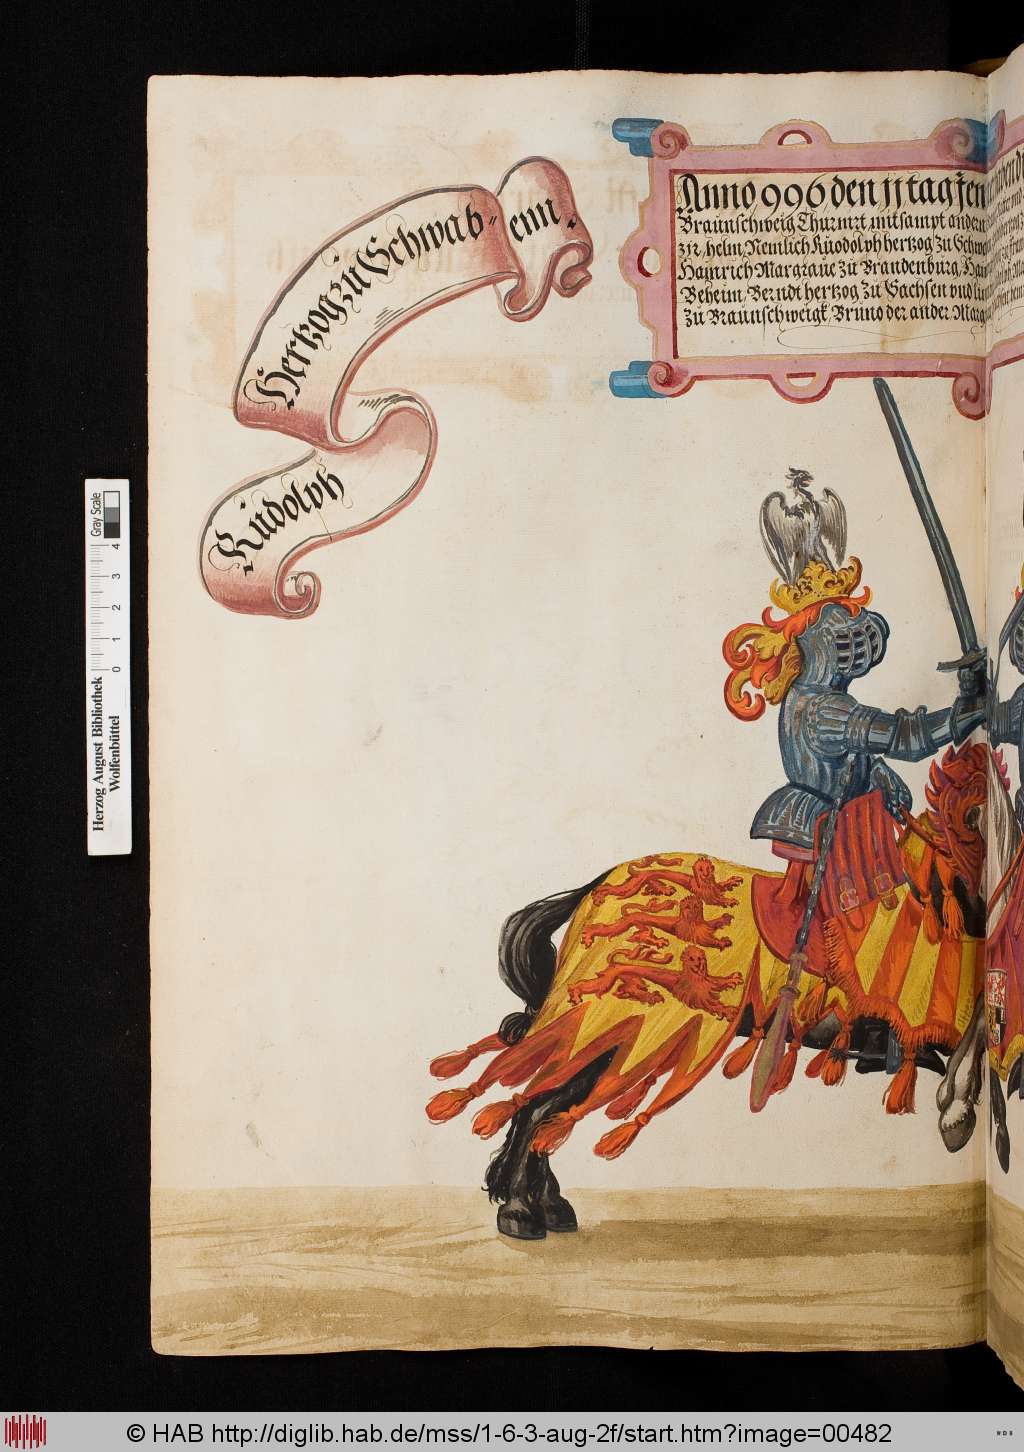 Rudolph
Hertzog zu Schwab=
enn.
Anno 996 den 11 tag Jen
Braunschweig Thurnirt mitsampt andern
zir, helm, Nemlich Rüodolph hertzog zu Schwa
Hainrich Margraue zu Brandenburg, Hai
Beheim, Berndt hertzog zu Sachsen vnd lü
zu Braunschweigk, Bruno der ander Marg
Gray Scale
0 1 2 3 4
Herzog August Bibliothek
Wolfenbüttel
© HAB http://diglib.hab.de/mss/1-6-3-aug-2f/start.htm?image=00482